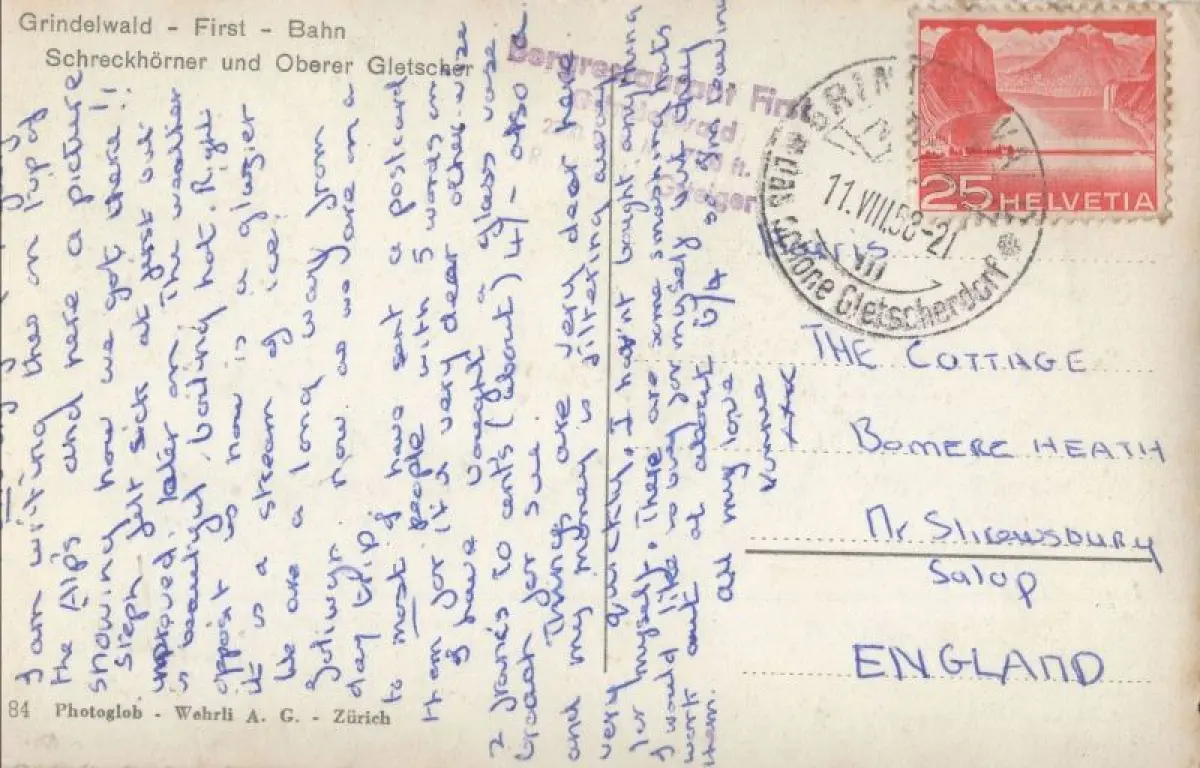 Grindelwald - First - Bahn
Schreckhörner und Oberer Gletscher
Bergrestaurant First
Grindelwald
ft.
GRINDELWALD
11.VIII.58-21
das schöne Gletscherdorf
25 HELVETIA
I am writing this on top of
the Alps and here a picture
snowing how we got there!!
Steph felt sick at first but
improved later on. The weather
is beautiful, boiling hot. Right
oppsit us now is a glasier
it is a stream of ice!
We are a long way from
now as we are on a
day trip.
to most I have sent a postcard
people with 5 words on
them for it is very dear other-wize
I have bought a glass vase
2 francs 10 cents (about) 4/- otso a
broach for sue.
Things are very dear here
and my money is filtering away
very quickly. I hav'nt bought anything
for myself. There are some smashing hats
I would like to buy for myself but they
work out at about 6/4 so Im saving
them.
all my love
xxx
THE COTTAGE
BOMERE HEATH
Nr Shrewsbury
Salop
ENGLAND
84 Photoglob - Wehrli A. G. - Zürich